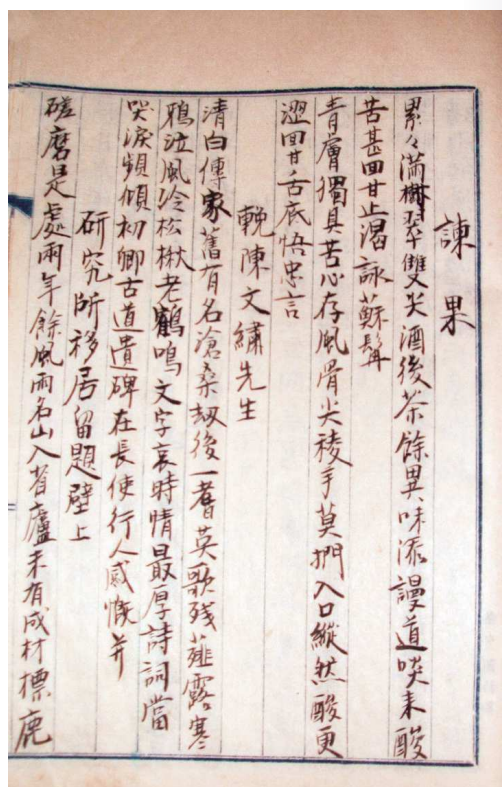 諫果
累々滿樹翠雙尖酒後茶餘異味添謾道啖來酸
苦甚回甘止渴詠蘇髯
青膚獨具苦心存風骨尖稜手莫捫入口縱然酸更
澀回甘舌底悟忠言
輓陳文繡先生
清白傳家舊有名滄桑劫後一耆英歌殘薤露寒
鴉泣風冷松楸老鶴鳴文字哀時情最厚詩詞當
哭淚頻傾初卿古道遺碑在長使行人感慨并
研究所移居留題壁上
磋磨是處兩年餘風雨名山入省廬未有成材標鹿